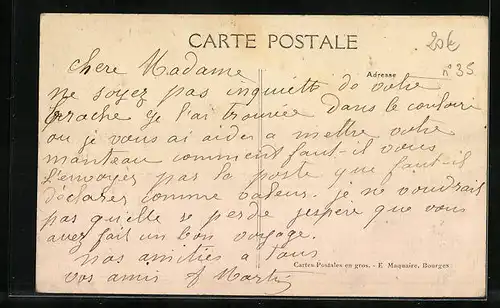 CARTE POSTALE
20€
Adresse
n°35
chere Madame
ne soyez pas inquiette de votre
broche je l'ai trouvée dans le couloir
ou je vous ai aider a mettre votre
manteau comment faut-il vous
l'envoyer pas la poste que faut-il
déclarer comme valeur. je ne voudrait
pas quelle se perde jespère que vous
avez fait un bon voyage.
nos amitiés a tous
vos amis
Cartes Postales en gros. - E. Maquaire, Bourges